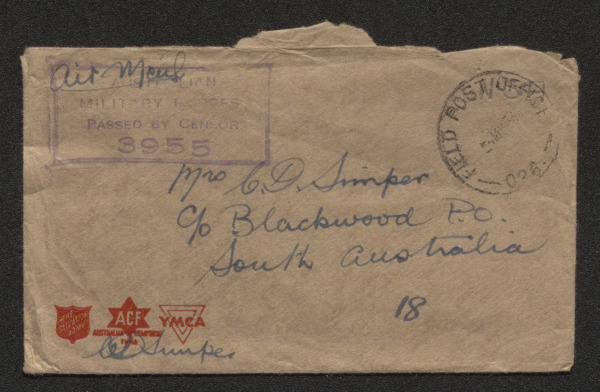 Air Mail
AUSTRALIAN
MILITARY FORCES
PASSED BY CENSOR
3955
FIELD POST OFFICE
026
Mrs C.D. Simper
C/o Blackwood P.O.
South Australia
18
THE SALVATION ARMY
ACF
AUSTRALIAN COMFORTS FUND
YMCA
CD Simper